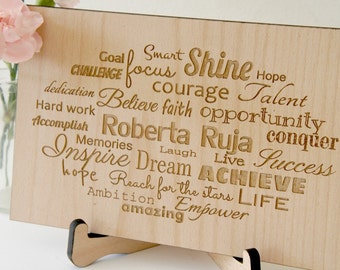 Goal Smart Shine Hope
CHALLENGE focus
courage Talent
dedication Believe faith opportunity
Hard work
Accomplish Roberta Ruja conquer
Memories Laugh Live Success
Inspire Dream ACHIEVE
hope Reach for the stars LIFE
Ambition Empower
amazing